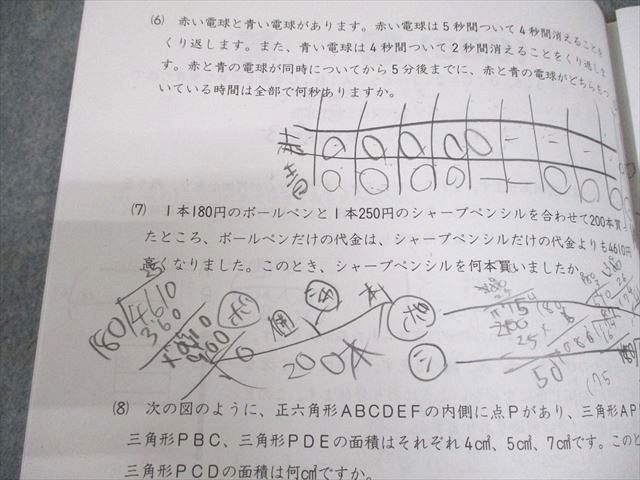 (6) 赤い電球と青い電球があります。赤い電球は5秒間ついて4秒間消えることを
くり返します。また、青い電球は4秒間ついて2秒間消えることをくり返しま
す。赤と青の電球が同時についてから5分後までに、赤と青の電球がどちらもつ
いている時間は全部で何秒ありますか。
赤
青
(7) 1本180円のボールペンと1本250円のシャープペンシルを合わせて200本買っ
たところ、ボールペンだけの代金は、シャープペンシルだけの代金よりも4610円
高くなりました。このとき、シャープペンシルを何本買いましたか
180
4610
360
200本
50
(75
(8) 次の図のように、正六角形ABCDEFの内側に点Pがあり、三角形AP
三角形PBC、三角形PDEの面積はそれぞれ4㎠、5㎠、7㎠です。このと
三角形PCDの面積は何㎠ですか。